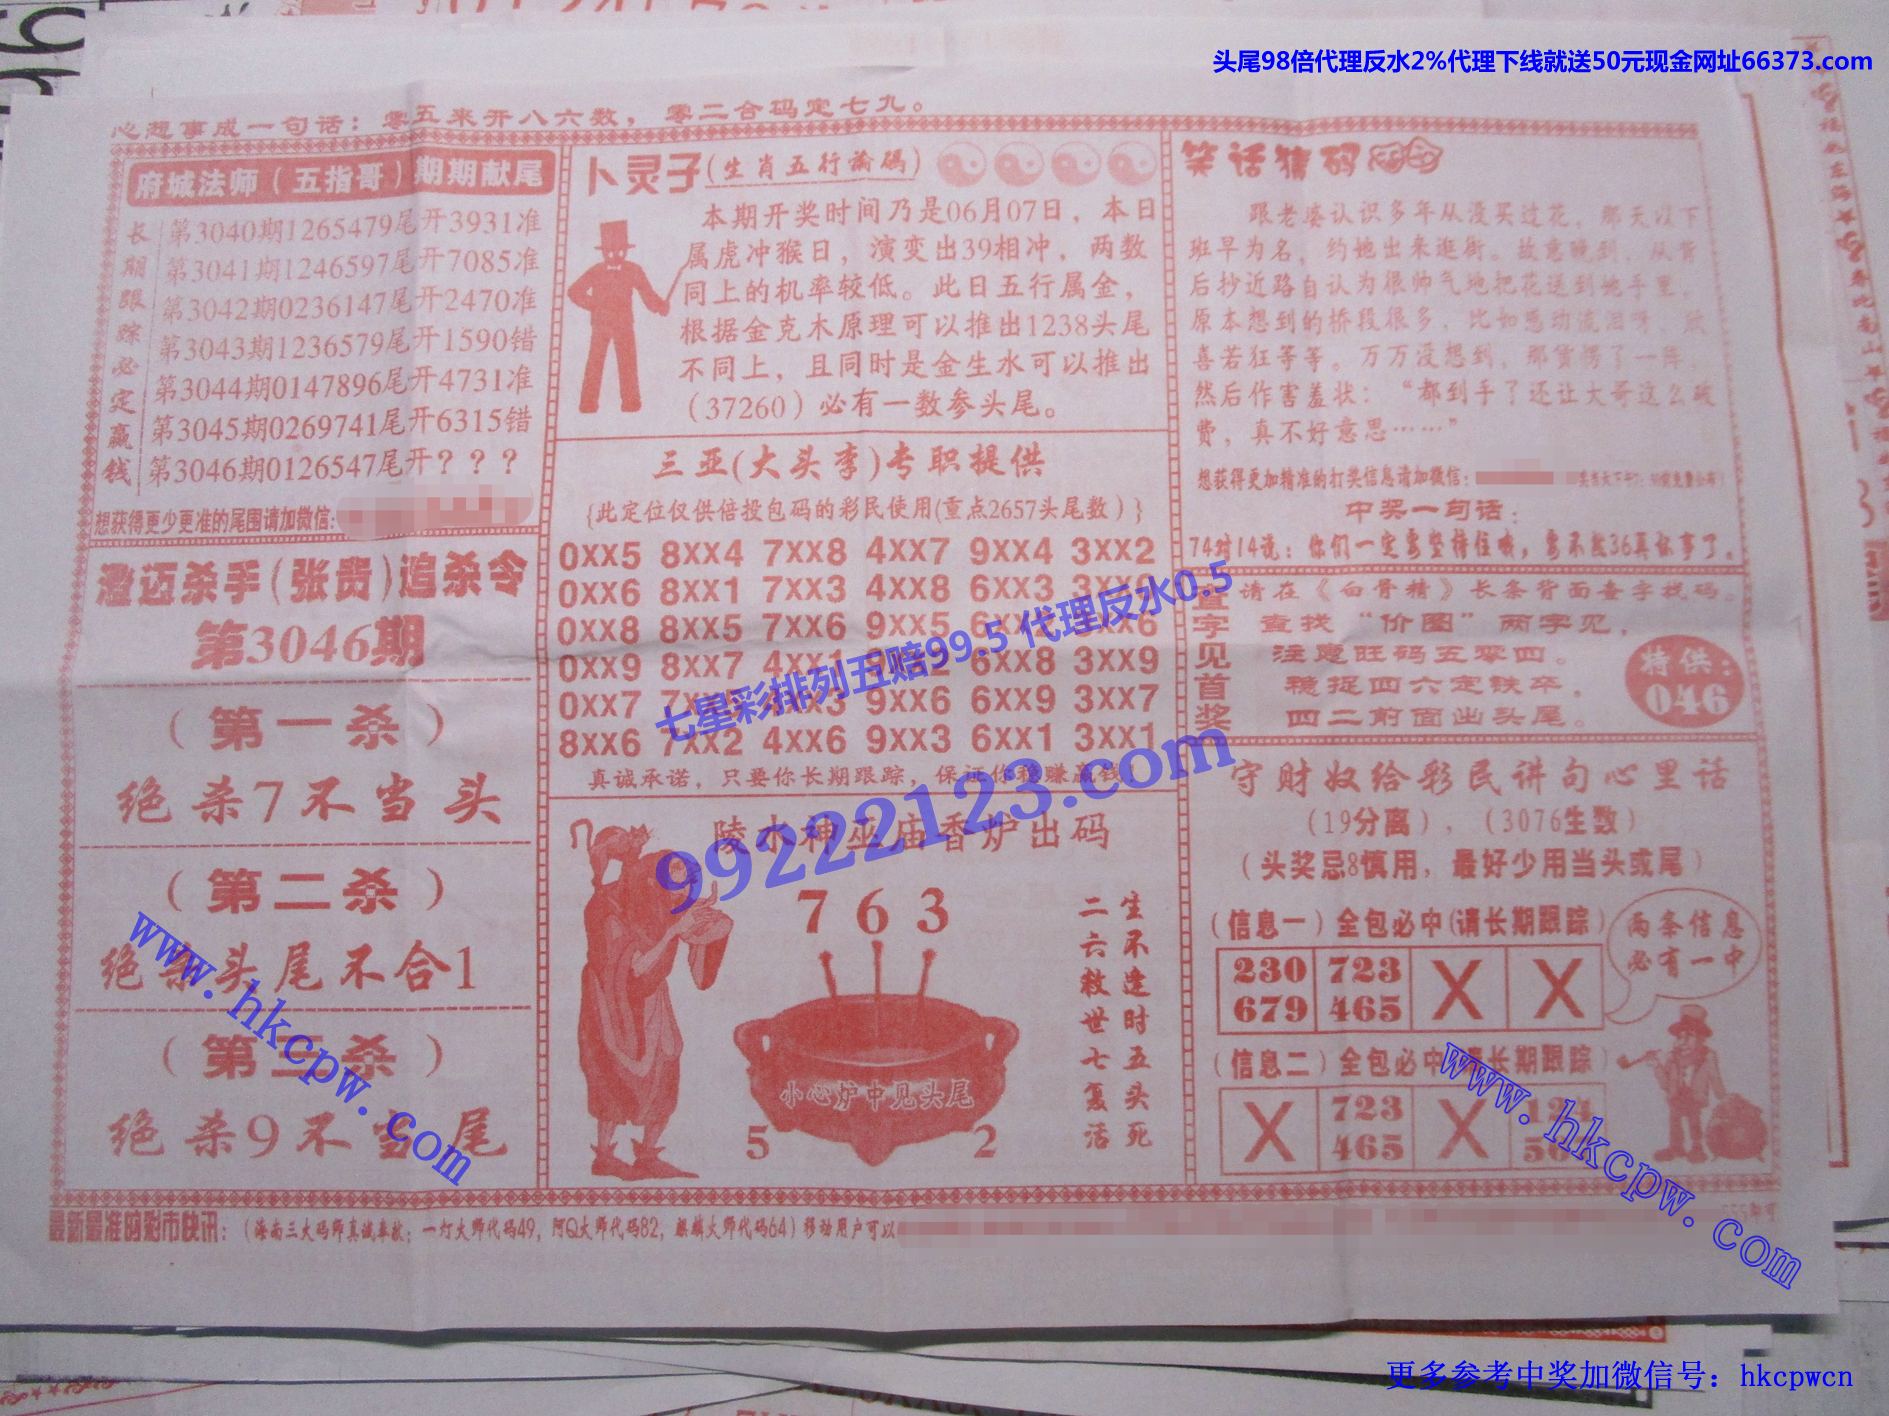 头尾98倍代理反水2%代理下线就送50元现金网址66373.com
心想事成一句话：零五来开八六数，零二合码定七九。
府城法师（五指哥）期期献尾
长期跟踪必定赢钱
第3040期1265479尾开3931准
第3041期1246597尾开7085准
第3042期0236147尾开2470准
第3043期1236579尾开1590错
第3044期0147896尾开4731准
第3045期0269741尾开6315错
第3046期0126547尾开？？？
想获得更少更准的尾围请加微信:
澄迈杀手(张贵)追杀令
第3046期
（第一杀）
绝杀7不当头
（第二杀）
绝杀头尾不合1
（第三杀）
绝杀9不当尾
卜灵子(生肖五行论码)
本期开奖时间乃是06月07日，本日
属虎冲猴日，演变出39相冲，两数
同上的机率较低。此日五行属金，
根据金克木原理可以推出1238头尾
不同上，且同时是金生水可以推出
（37260）必有一数参头尾。
三亚(大头李)专职提供
{此定位仅供倍投包码的彩民使用(重点2657头尾数）}
0XX5 8XX4 7XX8 4XX7 9XX4 3XX2
0XX6 8XX1 7XX3 4XX8 6XX3
0XX8 8XX5 7XX6 9XX5
0XX9 8XX7 4XX1 6XX8 3XX9
0XX7 9XX6 6XX9 3XX7
8XX6 7XX2 4XX6 9XX3 6XX1 3XX1
真诚承诺，只要你长期跟踪，保证你稳赚赢钱！
陵水神巫庙香炉出码
7 6 3
小心炉中见头尾
5 2
生不逢时五头死
二六救世七复活
笑话猜码
跟老婆认识多年从没买过花，那天以下
班早为名，约她出来逛街。故意晚到，从背
后抄近路自认为很帅气地把花送到她手里，
原本想到的桥段很多，比如感动流泪呀，欣
喜若狂等等。万万没想到，那货愣了一阵，
然后作害羞状：“都到手了还让大哥这么破
费，真不好意思……”
想获得更加精准的打奖信息请加微信:
中奖一句话：
74对14说：你们一定要坚持住哦，要不然36真坏事了。
查字见首奖
请在《白骨精》长条背面查字找码。
查找“价图”两字见，
注意旺码五零四。
稳捉四六定铁卒，
四二前面出头尾。
特供：
046
守财奴给彩民讲句心里话
（19分离），（3076生数）
（头奖忌8慎用，最好少用当头或尾）
（信息一）全包必中(请长期跟踪）
230 723 X X
679 465
两条信息
必有一中
（信息二）全包必中(请长期跟踪）
X 723 X
465
最新最准的彩市快讯：（海南三大码师真诚奉献；一灯大师代码49，阿Q大师代码82，麒麟大师代码64）移动用户可以
七星彩排列五赔99.5 代理反水0.5
99222123.com
www.hkcpw.com
www.hkcpw.com
更多参考中奖加微信号：hkcpwcn